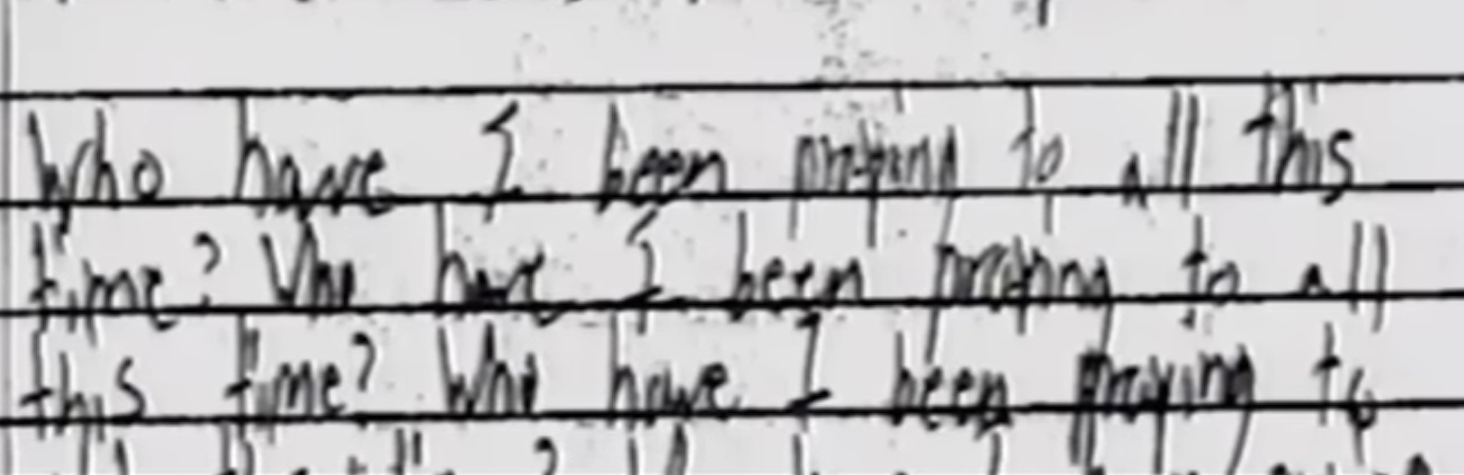 Who have I been praying to all this
time? Who have I been praying to all
this time? Who have I been praying to